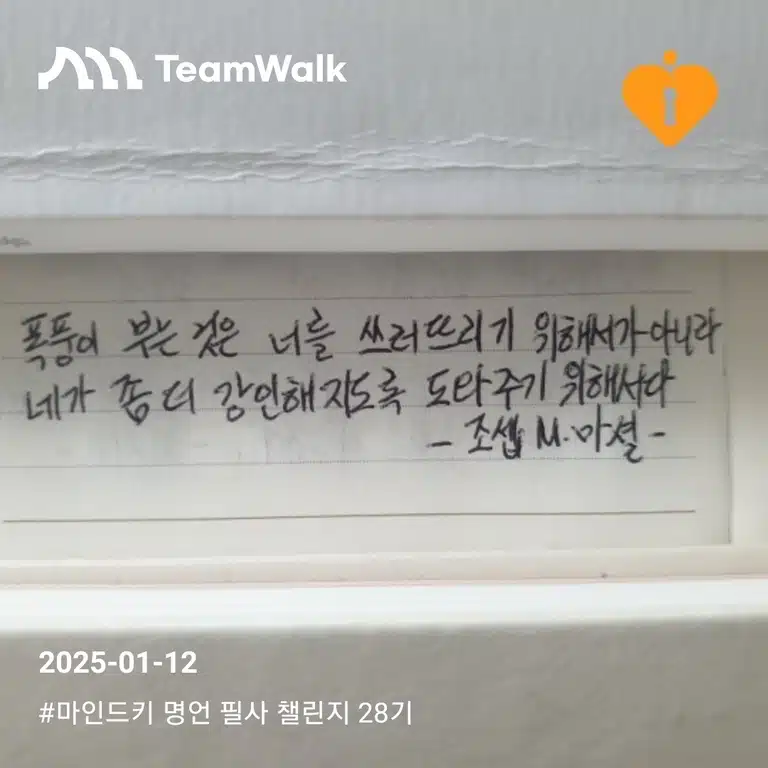 TeamWalk
폭풍이 부는 것은 너를 쓰러뜨리기 위해서가 아니라
네가 좀 더 강인해지도록 도와주기 위해서다
- 조셉 M. 마셜 -
2025-01-12
#마인드키 명언 필사 챌린지 28기